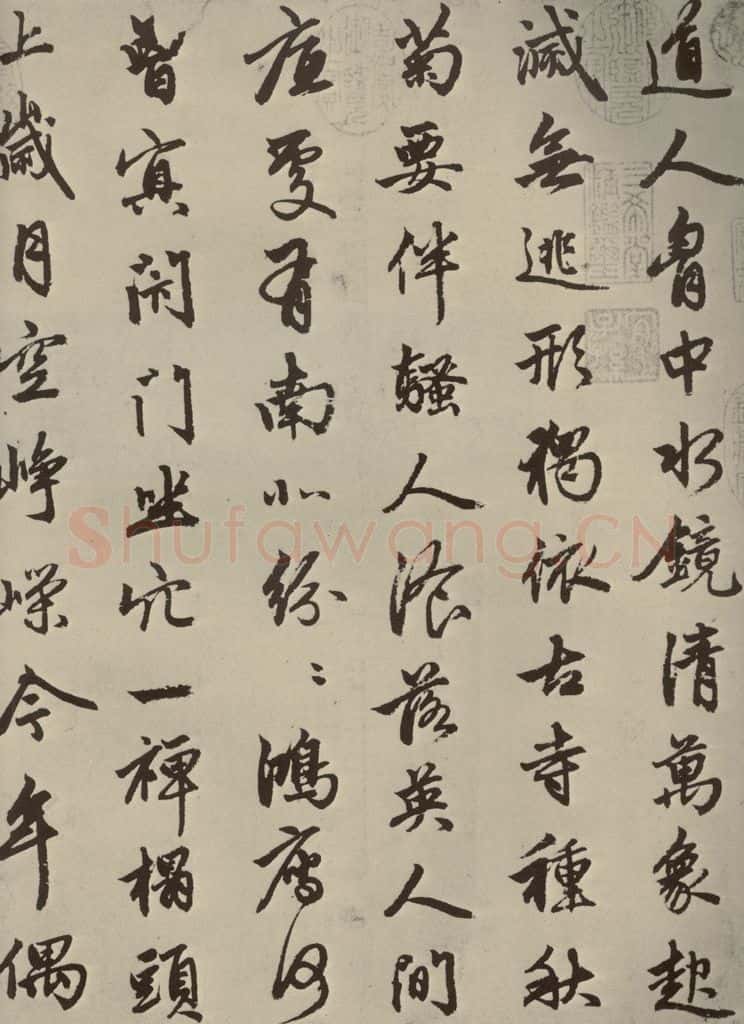 道人胷中水鏡清萬象起
滅無逃形獨依古寺種秋
菊要伴騷人飡落英人間
底處有南北紛〻鴻鴈何
曾冥閉門坐穴一禪榻頭
上歲月空崢嶸今年偶
Shufawang.CN